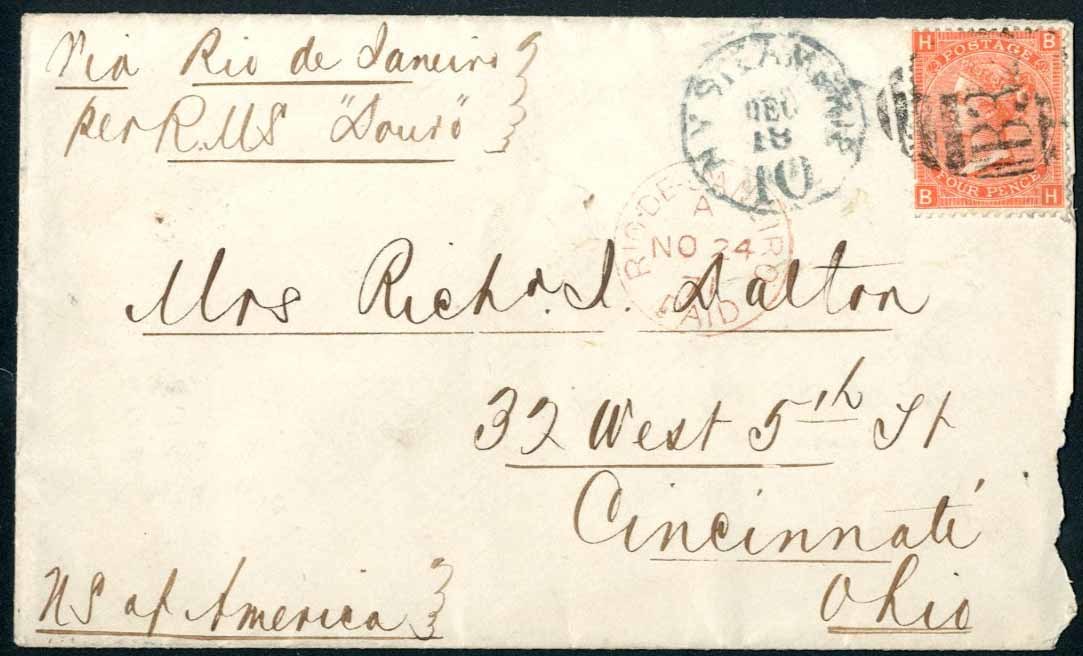 Via Rio de Janeiro
per RMS "Douro"
N Y STEAMSHIP
DEC
18
10
H B
POSTAGE
FOUR PENCE
B H
RIO-DE-JANEIRO
A
NO 24
71
PAID
Mrs Richd. J. Dalton
32 West 5th St
Cincinnati
Ohio
US of America